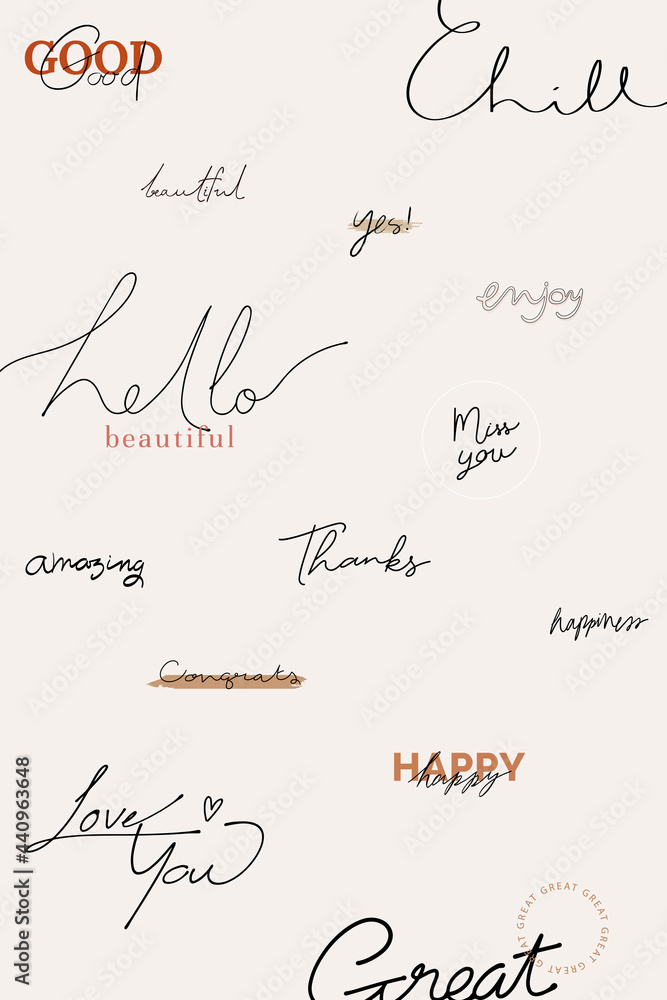 GOOD
Good
Chill
beautiful
yes!
enjoy
hello
beautiful
Miss
you
amazing
Thanks
happiness
Congrats
HAPPY
happy
Love
You
GREAT GREAT GREAT GREAT GREAT GREAT
Great
Adobe Stock | #440963648